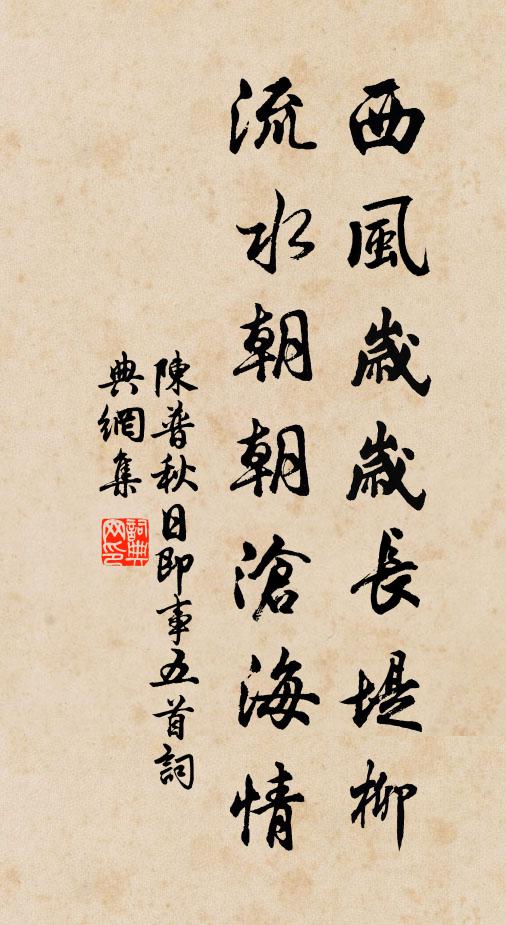 西風歲歲長堤柳
流水朝朝滄海情
陳普秋日即事五首詞
典網集
詞典
网印